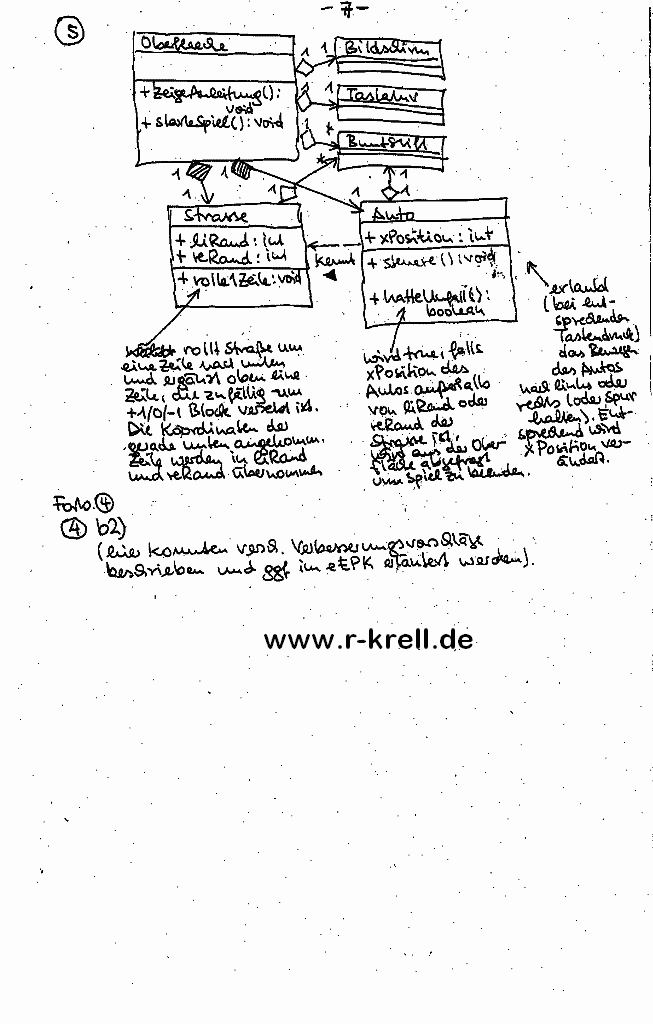 - 7 -
5
Oberflaeche
+ zeigeAnleitung():
void
+ starteSpiel(): void
1 1 Bildschirm
1 1 Tastatur
1 * Buntstift
1 1 1 * 1 1
Strasse
+ liRand: int
+ reRand: int
+ rolle1Zeile: void
kennt
Auto
+ xPosition: int
+ steuere(): void
+ hatteUnfall():
boolean
rollt Straße um
eine Zeile nach unten
und ergänzt oben eine
Zeile, die zufällig um
+1/0/-1 Block versetzt ist.
Die Koordinaten der
gerade unten angekomm.
Zeile werden in liRand
und reRand übernommen
wird true, falls
xPosition des
Autos außerhalb
von liRand oder
reRand der
Strasse ist.
Wird aus der Ober-
fläche abgefragt
um Spiel zu beenden.
erlaubt
(bei ent-
sprechender
Tastendruck)
das Bewegen
des Autos
nach links oder
rechts (oder Spur
halten). Ent-
sprechend wird
xPosition ver-
ändert.
Forts. 4
4 b2)
(hier konnten versch. Verbesserungsvorschläge
beschrieben und ggf im eEPK erläutert werden).
www.r-krell.de